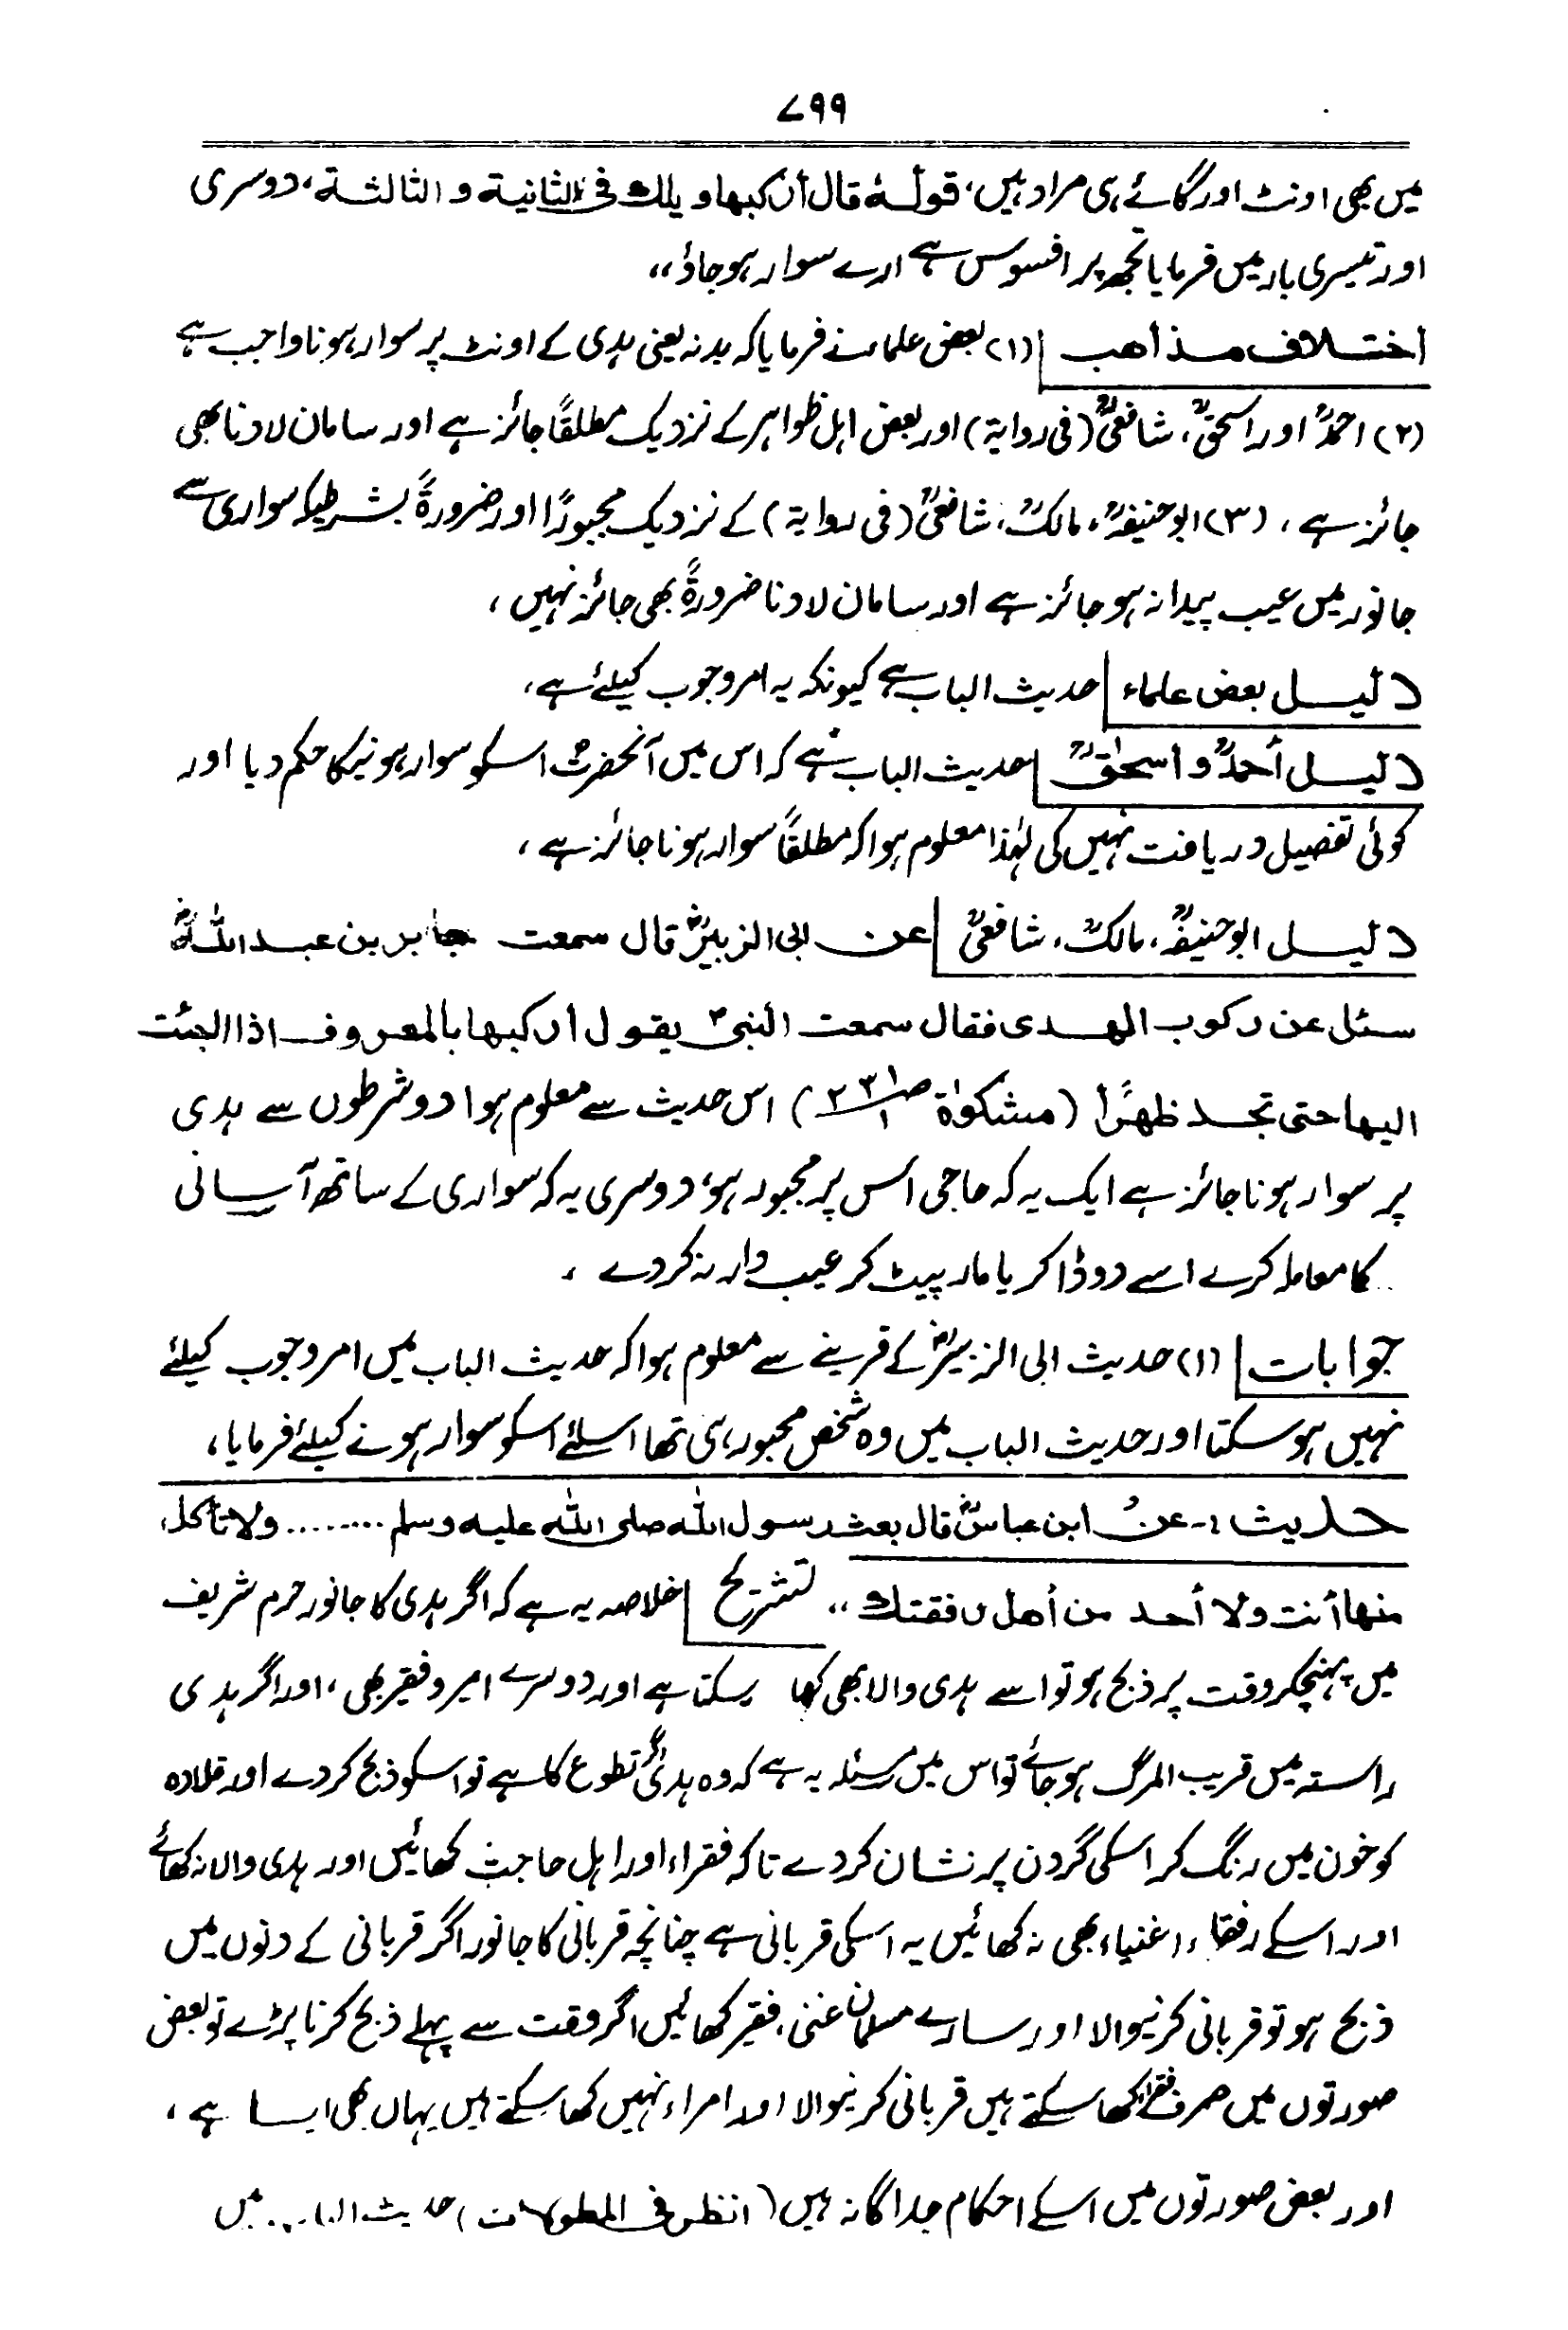 ۷۹۹
میں بھی اونٹ اور گائے ہی مراد ہیں، قولہٗ قال أرکبھا ویلك فی الثانیة و الثالثة، دوسری
اور تیسری بار میں فرمایا تجھ پر افسوس ہے ارے سوار ہوجاؤ،،
أختلاف مذأھب (۱) بعض علماء نے فرمایا کہ بدنہ یعنی ہدی کے اونٹ پر سوار ہونا واجب ہے
(۲) احمدؒ اور اسحٰقؒ، شافعیؒ (فی روایۃ) اور بعض اہل ظواہر کے نزدیک مطلقًا جائز ہے اور سامان لادنا بھی
جائز ہے، (۳) ابوحنیفہؒ، مالکؒ، شافعیؒ (فی روایۃ) کے نزدیک مجبورًا اور ضرورۃً بشرطیکہ سواری سے
جانور میں عیب پیدا نہ ہو جائز ہے اور سامان لادنا ضرورۃً بھی جائز نہیں،
دلیل بعض علماء حدیث الباب ہے کیونکہ یہ امر وجوب کیلئے ہے،
دلیل أحمدؒ و اسحٰقؒ حدیث الباب ہے کہ اس میں آنحضرتؐ اسکو سوار ہونیکا حکم دیا اور
کوئی تفصیل دریافت نہیں کی لہٰذا معلوم ہوا کہ مطلقًا سوار ہونا جائز ہے،
دلیل ابوحنیفہؒ، مالکؒ، شافعیؒ عن ابی الزبیرؓ قال سمعت جابر بن عبد اللہؓ
سئل عن رکوب الھدی فقال سمعت النبی ؐ یقول أرکبھا بالمعروف اذا الجئت
الیھا حتی تجد ظھرًا (مشکوٰۃ ص۲۳۱) اس حدیث سے معلوم ہوا دو شرطوں سے ہدی
پر سوار ہونا جائز ہے ایک یہ کہ حاجی اس پر مجبور ہو، دوسری یہ کہ سواری کے ساتھ آسانی
کا معاملہ کرے اسے دوڑا کر یا مار پیٹ کر عیب دار نہ کردے،
جوابات (۱) حدیث ابی الزبیرؓ کے قرینے سے معلوم ہوا کہ حدیث الباب میں امر وجوب کیلئے
نہیں ہوسکتا اور حدیث الباب میں وہ شخص مجبور ہی تھا اسلئے اسکو سوار ہونے کیلئے فرمایا،
حدیث :- عن ابن عباسؓ قال بعث رسول اللہ صلی اللہ علیہ وسلم ........ ولا تأکل
منھا أنت ولا أحد من أھل رفقتك،، تشریح خلاصہ یہ ہے کہ اگر ہدی کا جانور حرم شریف
میں پہنچکر وقت پر ذبح ہو تو اسے ہدی والا بھی کھا سکتا ہے اور دوسرے امیر و فقیر بھی، اور اگر ہدی
راستہ میں قریب المرگ ہوجائے تو اس میں مسئلہ یہ ہے کہ وہ ہدی اگر تطوع کا ہے تو اسکو ذبح کردے اور قلادہ
کو خون میں رنگ کر اسکی گردن پر نشان کردے تاکہ فقراء اور اہل حاجت کھائیں اور ہدی والا نہ کھائے
اور اسکے رفقاء، اغنیاء بھی نہ کھائیں یہ اسکی قربانی ہے چنانچہ قربانی کا جانور اگر قربانی کے دنوں میں
ذبح ہو تو قربانی کرنیوالا اور سارے مسلمان غنی، فقیر کھائیں اگر وقت سے پہلے ذبح کرنا پڑے تو بعض
صورتوں میں صرف فقراء کھاسکتے ہیں قربانی کرنیوالا اور امراء نہیں کھاسکتے ہیں یہاں بھی ایسا ہے،
اور بعض صورتوں میں اسکے احکام جداگانہ ہیں (انظر فی المطولات) حدیث الباب میں